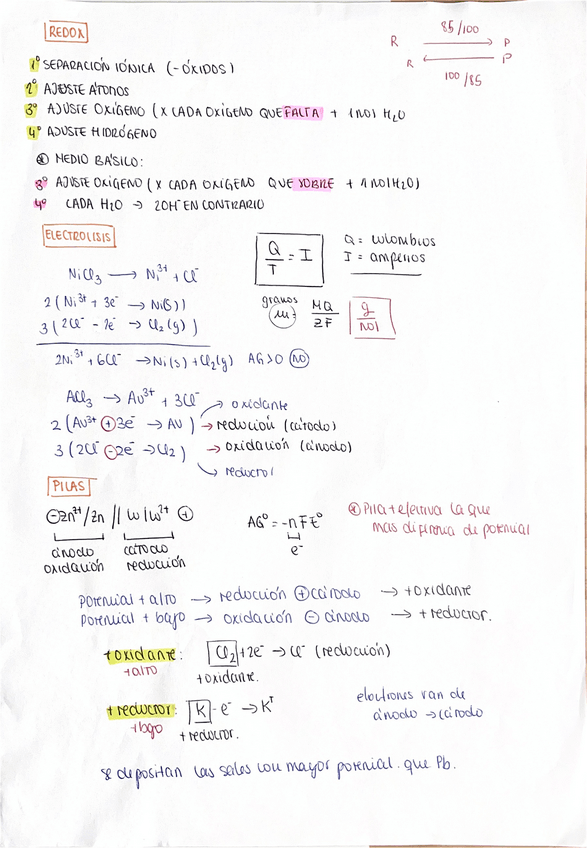 REDOX
85/100
R → P
R ← P
100/85
1º SEPARACIÓN IÓNICA (-ÓXIDOS)
2º AJUSTE ÁTOMOS
3º AJUSTE OXÍGENO (X CADA OXÍGENO QUE FALTA + 1 MOl H2O
4º AJUSTE HIDRÓGENO
* MEDIO BÁSICO:
3º AJUSTE OXÍGENO (X CADA OXÍGENO QUE SOBRE + 1 MOl H2O)
4º CADA H2O → 2OH- EN CONTRARIO
ELECTROLISIS
Q/T = I
Q = culombios
I = amperios
NiCl3 → Ni3+ + Cl-
2(Ni3+ + 3e- → Ni(s))
3(2Cl- - 2e- → Cl2(g))
gramos
m = MQ/ZF
g/mol
2Ni3+ + 6Cl- → Ni(s) + Cl2(g) AG>0 NO
AuCl3 → Au3+ + 3Cl-
oxidante
2(Au3+ + 3e- → Au) → reducción (cátodo)
3(2Cl- - 2e- → Cl2) → oxidación (ánodo)
reductor
PILAS
⊖ Zn2+/Zn // Cu/Cu2+ ⊕
ánodo oxidación
cátodo reducción
AGº = -nFEº
e-
* Pila + efectiva la que
mas diferencia de potencial
Potencial + alto → reducción ⊕ cátodo → + oxidante
Potencial + bajo → oxidación ⊖ ánodo → + reductor.
+ oxidante: Cl2 + 2e- → Cl- (reducción)
+ alto
+ oxidante.
+ reductor: K - e- → K+
+ bajo
+ reductor.
electrones van de
ánodo → cátodo
se depositan las sales con mayor potencial que Pb.